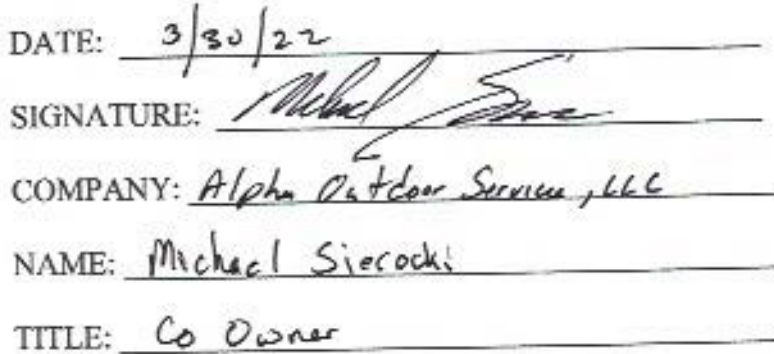 DATE: 3/30/22
SIGNATURE: Michael
COMPANY: Alpha Outdoor Services, LLC
NAME: Michael Sierocki
TITLE: Co Owner